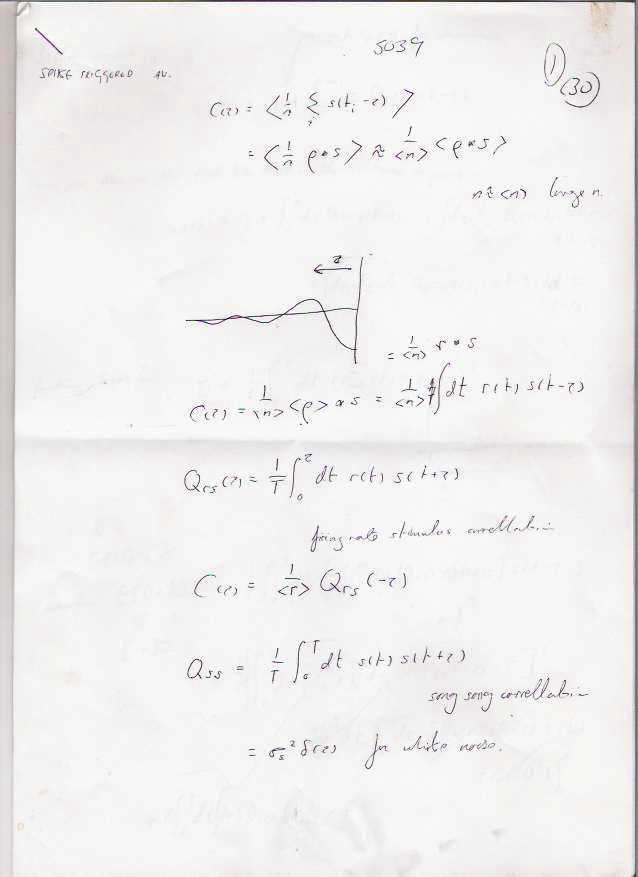 5039
1
(30)
SPIKE TRIGGERED AV.
C(τ) = ⟨ 1/n Σ_i s(t_i - τ) ⟩
= ⟨ 1/n ρ * s ⟩ ≈ 1/⟨n⟩ ⟨ρ * s⟩
n ≈ ⟨n⟩ large n.
τ
= 1/⟨n⟩ r * s
C(τ) = 1/⟨n⟩ ⟨ρ⟩ * s = 1/⟨n⟩ ∫ dt r(t) s(t-τ)
Q_rs(τ) = 1/T ∫_0^τ dt r(t) s(t+τ)
firing rate stimulus correllation
C(τ) = 1/⟨r⟩ Q_rs(-τ)
Q_ss = 1/T ∫_0^T dt s(t) s(t+τ)
song song correllation
= σ_s² δ(τ) for white noise.